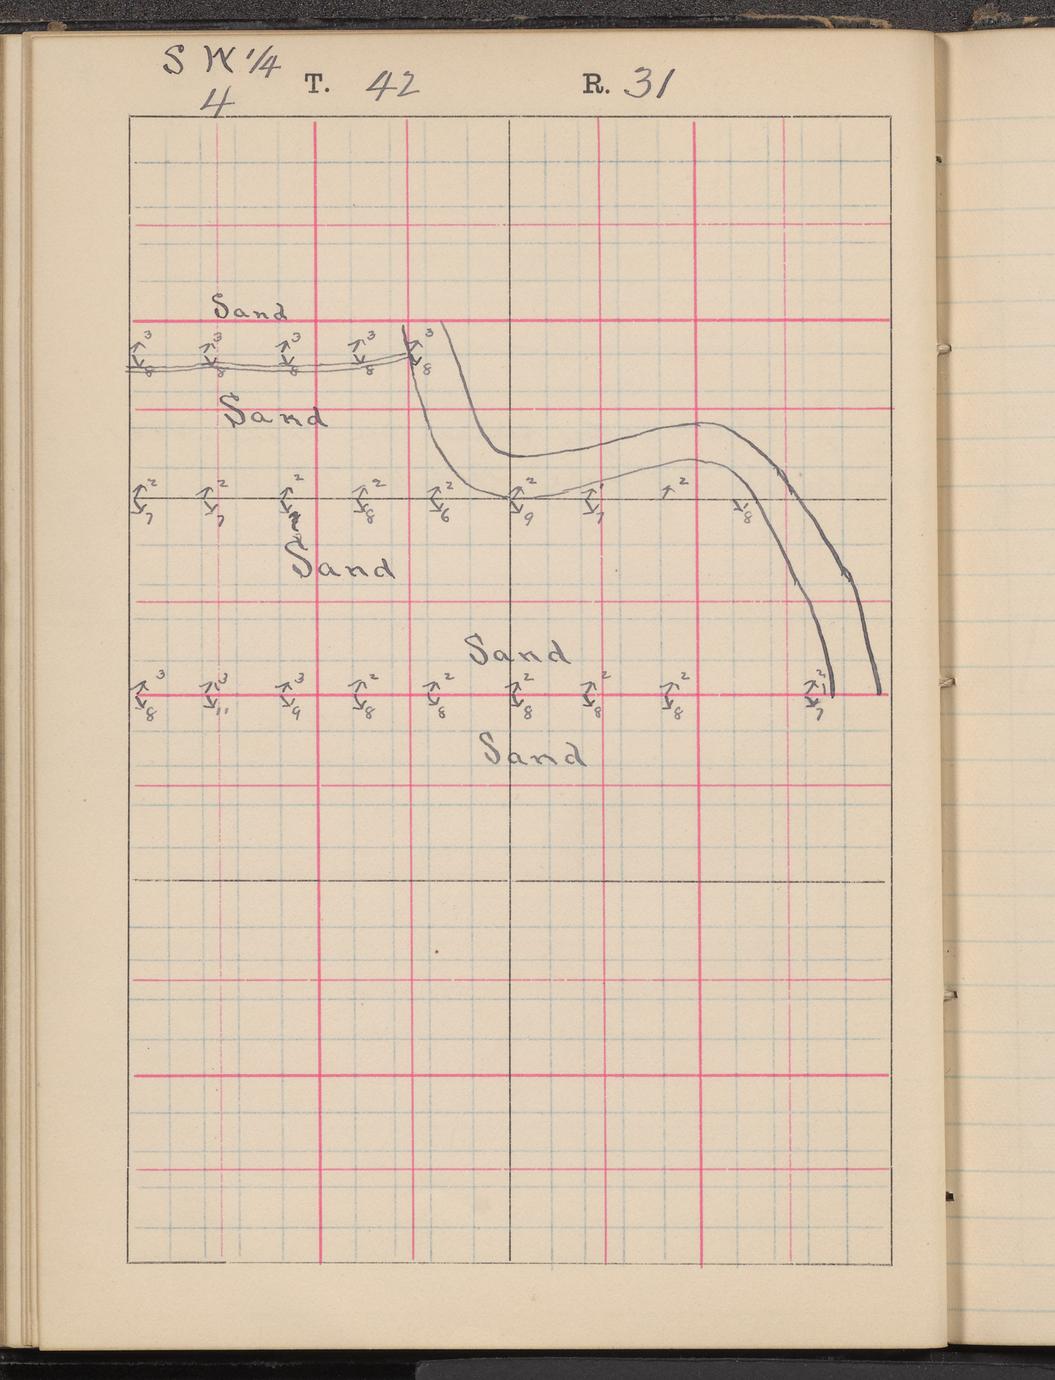 S W 1/4
4 T. 42 R. 31
Sand
3 3 3 3 3
8 8 8 8 8
Sand
2 2 2 2 2 2 1 2
7 7 8 6 9 7 8
Sand
Sand
3 3 3 2 2 2 2 2 2
8 11 9 8 8 8 8 8 7
Sand